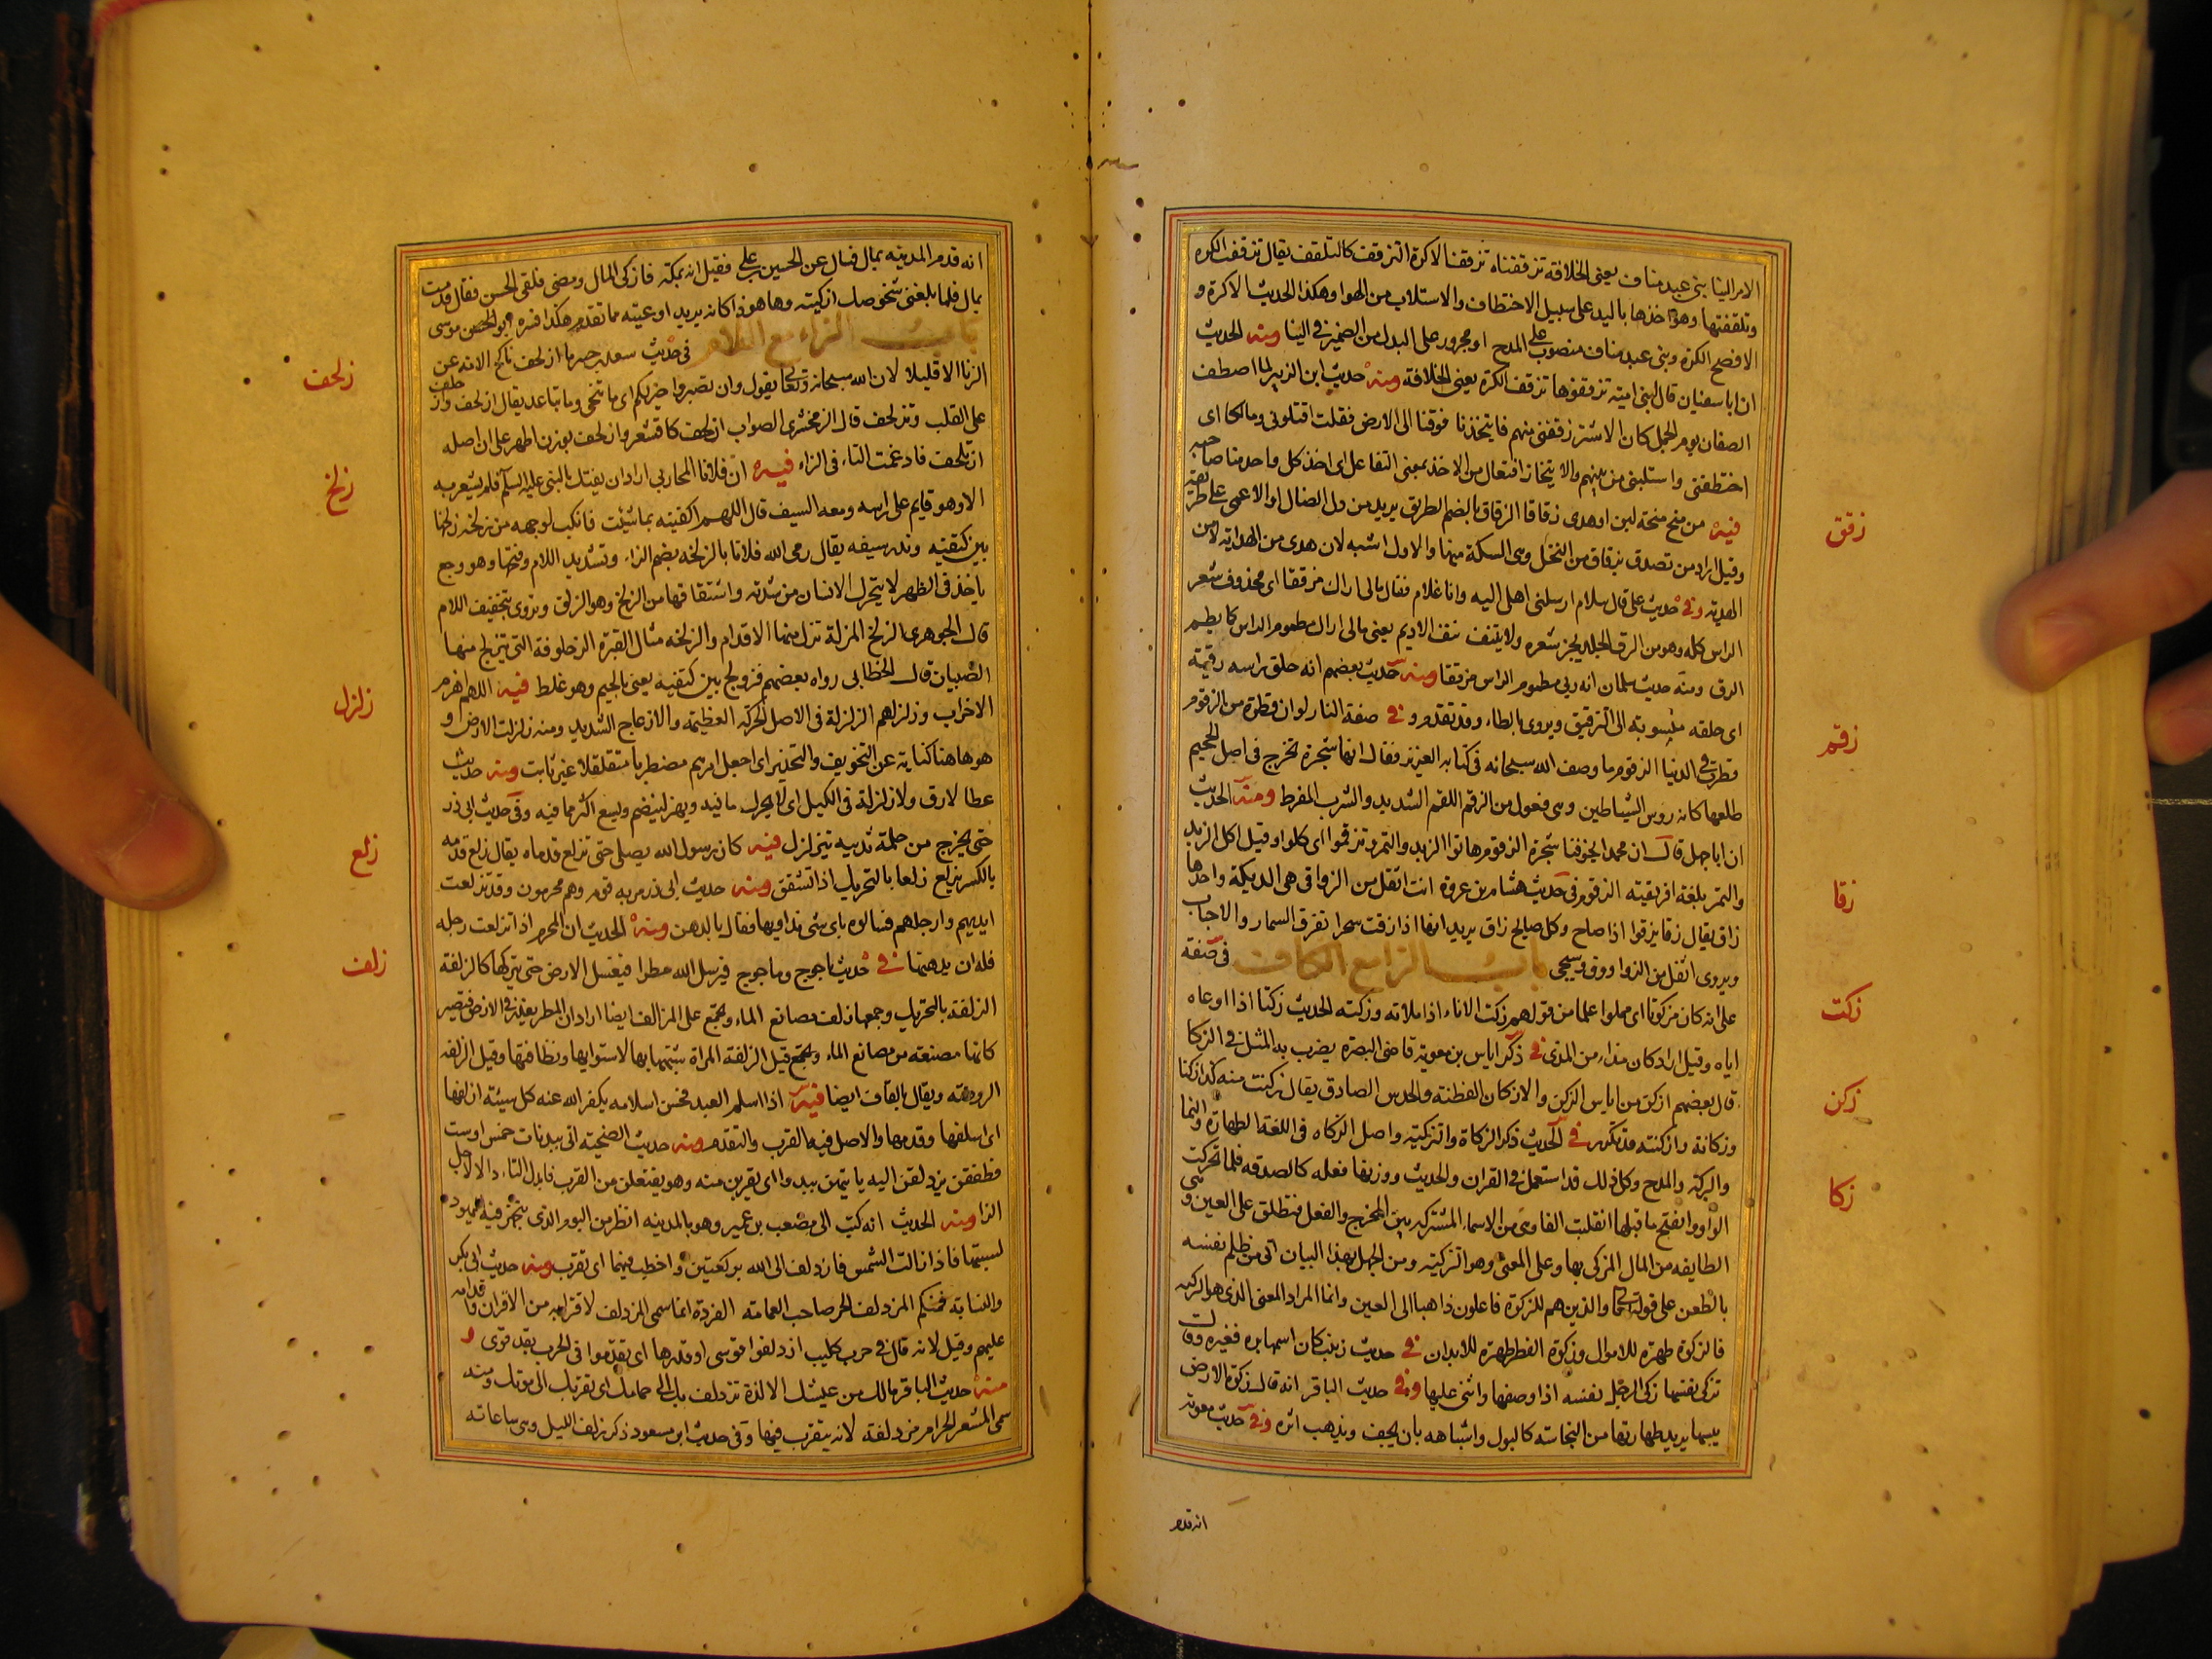 الامر الينا بنى عبد مناف يعنى الخلافة تزقفناه تزقفنا الاكرة التزقف كالتلقف يقال تزقفت الكرة
وتلقفتها وهو اخذها باليد على سبيل الاختطاف والاستلاب من الهوا وهكذا الحديث الاكرة و
الافصح الكرة وبنى عبد مناف منصوب على المدح او مجرور على البدل من الضمير في الينا ومنه الحديث
ان ابا سفيان قال لبنى امية تزقفوها تزقف الكرة يعنى الخلافة ومنه حديث ابن الزبير لما اصطف
الصفان يوم الجمل كان الاشتر زقفنى منهم فايتخذنا فوقفنا الى الارض فقلت اقتلونى ومالكا اى
اختطفنى واستلبنى من بينهم والايتخاذ افتعال من الاخذ بمعنى التفاعل اى اخذ كل واحد منا صاحبه
زقق
فيه من منح منحة لبن او هدى زقاقا الزقاق بالضم الطريق يريد من دل الضال او الاعمى على طريقه
وقيل اراد من تصدق بزقاق من النخل وهى السكة منها والاول اشبه لان هدى من الهداية لا من
الهدية وفى حديث على قال سلام ارسلنى اهلى اليه وانا غلام فقال مالى اراك مزققا اى محذوف شعر
الراس كله وهو من الزق الجلد يجز شعره ولا ينتف نتف الاديم يعنى مالى اراك مطموم الراس كما يطم
الزق ومنه حديث سلمان انه رىى مطموم الراس مزققا ومنه حديث بعضهم انه حلق راسه زقية
زقم
اى حلقه منسوبة الى التزقيق ويروى بالطاء وقد تقدم وفى صفة النار لوان قطرة من الزقوم
قطرت فى الدنيا الزقوم ما وصف الله سبحانه فى كتابه العزيز فقال انها شجرة تخرج فى اصل الجحيم
طلعها كانه روس الشياطين وهى فعول من الزقم اللقم الشديد والشرب المفرط ومنه الحديث
ان ابا جهل قال ان محمدا يخوفنا شجرة الزقوم هاتوا الزبد والتمر وتزقموا اى كلوا وقيل اكل الزبد
زقا
والتمر بلغة افريقية الزقوم فى حديث هشام بن عروة انت اثقل من الزواقى هى الديكة واحدها
زاق يقال زقا يزقوا اذا صاح وكل صايح زاق يريد انها اذا زقت سحرا تفرق السمار والاحباب
ويروى اثقل من الزواووق وسيجى باب الزا مع الكاف فى صفة
زكت
على انه كان مزكوتا اى مملوا علما من قولهم زكت الاناء اذا ملاته وزكته الحديث زكتا اذا اوعاه
اياه وقيل اراد كان مذاء من المذى فى ذكر اياس بن معوية قاضى البصرة يضرب به المثل فى الزكا
زكن
قال بعضهم ازكن من اياس الزكن والازكان الفطنة والحدس الصادق يقال زكنت منه كذا زكنا
وزكانة وازكنته قد تكرر فى الحديث ذكر الزكاة والتزكية واصل الزكاه فى اللغة الطهارة والنما
زكا
والبركه والمدح وكل ذلك قد استعمل فى القران والحديث ووزنها فعله كالصدقه فلما تحركت
الواو وانفتح ما قبلها انقلبت الفا وهى من الاسماء المشتركه بين المخرج والفعل فتطلق على العين وهى
الطايفه من المال المزكى بها وعلى المعنى وهو التزكية ومن الجهل بهذا البيان اتى من ظلم نفسه
بالطعن على قوله تعالى والذين هم للزكوة فاعلون ذاهبا الى العين وانما المراد المعنى الذى هو التزكيه
فالزكوة طهرة للاموال وزكوة الفطر طهرة للابدان فى حديث زينب كان اسمها بره فغيره وقال
تزكى نفسها زكى الرجل نفسه اذا وصفها واثنى عليها وفى حديث الباقر انه قال زكوة الارض
يبسها يريد طهارتها من النجاسة كالبول واشباهه بان يجف ويذهب اثره وفى حديث معوية
انه قدم
انه قدم المدينه بمال فسال عن الحسين بن على فقيل انه بمكة فازكى المال ومضى فلقى الحسن فقال قدمت
بمال فلما بلغنى شخوصك ازكيته وها هو ذا كانه يريد اوعيته مما تقدم هكذا فسره ابو الحسن موسى
باب الزاء مع اللام فى حديث سعيد بن جبير ما ازلحف ناكح الامة عن
زلحف
الزنا الا قليلا لان الله سبحانه وتعالى يقول وان تصبروا خير لكم اى ما تنحى وما تباعد يقال ازلحف وازحلف
على القلب وتزلحف قال الزمخشرى الصواب ازلحف كاقشعر وازلحف بوزن اطهر على ان اصله
ازتلحف فادغمت التاء فى الزاء فيه ان فلانا المحاربى اراد ان يفتك بالنبى عليه السلم فلم يشعر به
زلخ
الا وهو قايم على راسه ومعه السيف قال اللهم اكفنيه بما شئت فانكب لوجهه من زلخة زلخها
بين كتفيه وندر سيفه يقال رمى الله فلانا بالزلخة بضم الزاء وتشديد اللام وفتحها وهو وجع
ياخذ فى الظهر لا يتحرك الانسان من شدته واشتقاقها من الزلخ وهو الزلق ويروى بتخفيف اللام
قال الجوهرى الزلخ المزلة تزل منها الاقدام والزلخه مثال القبرة الزحلوفة التى يتزلج منها
الصبيان قال الخطابى رواه بعضهم فزولج بين كتفيه يعنى بالجيم وهو غلط فيه اللهم اهزم
زلزل
الاحزاب وزلزلهم الزلزلة فى الاصل الحركة العظيمة والازعاج الشديد ومنه زلزلت الارض و
هو هاهنا كناية عن التخويف والتحذير اى اجعل امرهم مضطربا متقلقلا غير ثابت ومنه حديث
عطا لا دق ولا زلزلة فى الكيل اى لا يحرك ما فيه ويهز لينضم ويسع اكثر مما فيه وفى حديث ابى ذر
زلع
حتى يخرج من حلمة ثدييه يتزلزل فيه كان رسول الله يصلى حتى تزلع قدماه يقال زلع قدمه
بالكسر يزلع زلعا بالتحريك اذا تشقق ومنه حديث ابى ذر مر به قوم وهم محرمون وقد تزلعت
ايديهم وارجلهم فسالوه باى شى نداويها فقال بالدهن ومنه الحديث ان المحرم اذا تزلعت رجله
زلف
فله ان يدهنها فى حديث ياجوج وماجوج فيرسل الله مطرا فيغسل الارض حتى يتركها كالزلفة
الزلفة بالتحريك وجمعها زلف مصانع الماء وتجمع على المزالف ايضا اراد ان المطر يغدر فى الارض فتصير
كانها مصنعة من مصانع الماء وقيل الزلفة المراة شبهها بها لاستوايها ونظافتها وقيل الزلفه
الروضة ويقال بالقاف ايضا فيه اذا اسلم العبد فحسن اسلامه يكفر الله عنه كل سيئة ازلفها
اى اسلفها وقدمها والاصل فيه القرب والتقدم ومنه حديث الضحية اتى ببدنات خمس او ست
فطفقن يزدلفن اليه بايتهن يبدوا اى يقربن منه وهو يفتعلن من القرب فابدل التاء دالا لاجل
الزا ومنه الحديث انه كتب الى مصعب بن عمير وهو بالمدينه انظر من اليوم الذى يتجهز فيه اليهود
لسبتها فاذا زالت الشمس فازدلف الى الله بركعتين واخطب فيهما اى تقرب ومنه حديث ابى بكر
والنسابة فمنكم المزدلف الحر صاحب العمامة الفردة انما سمى المزدلف لاقترابه من الاقران واقدامه
عليهم وقيل لانه قال فى حرب كليب ازدلفوا قوسى او قدرها اى تقدموا فى الحرب بقدر قوسى و
منه حديث الباقر مالك من عيشك الا لذة تزدلف بك الى حمامك اى تقربك الى موتك ومنه
سمى المشعر الحرام مزدلفة لانه يتقرب فيها وفى حديث ابن مسعود ذكر زلف الليل وهى ساعاته